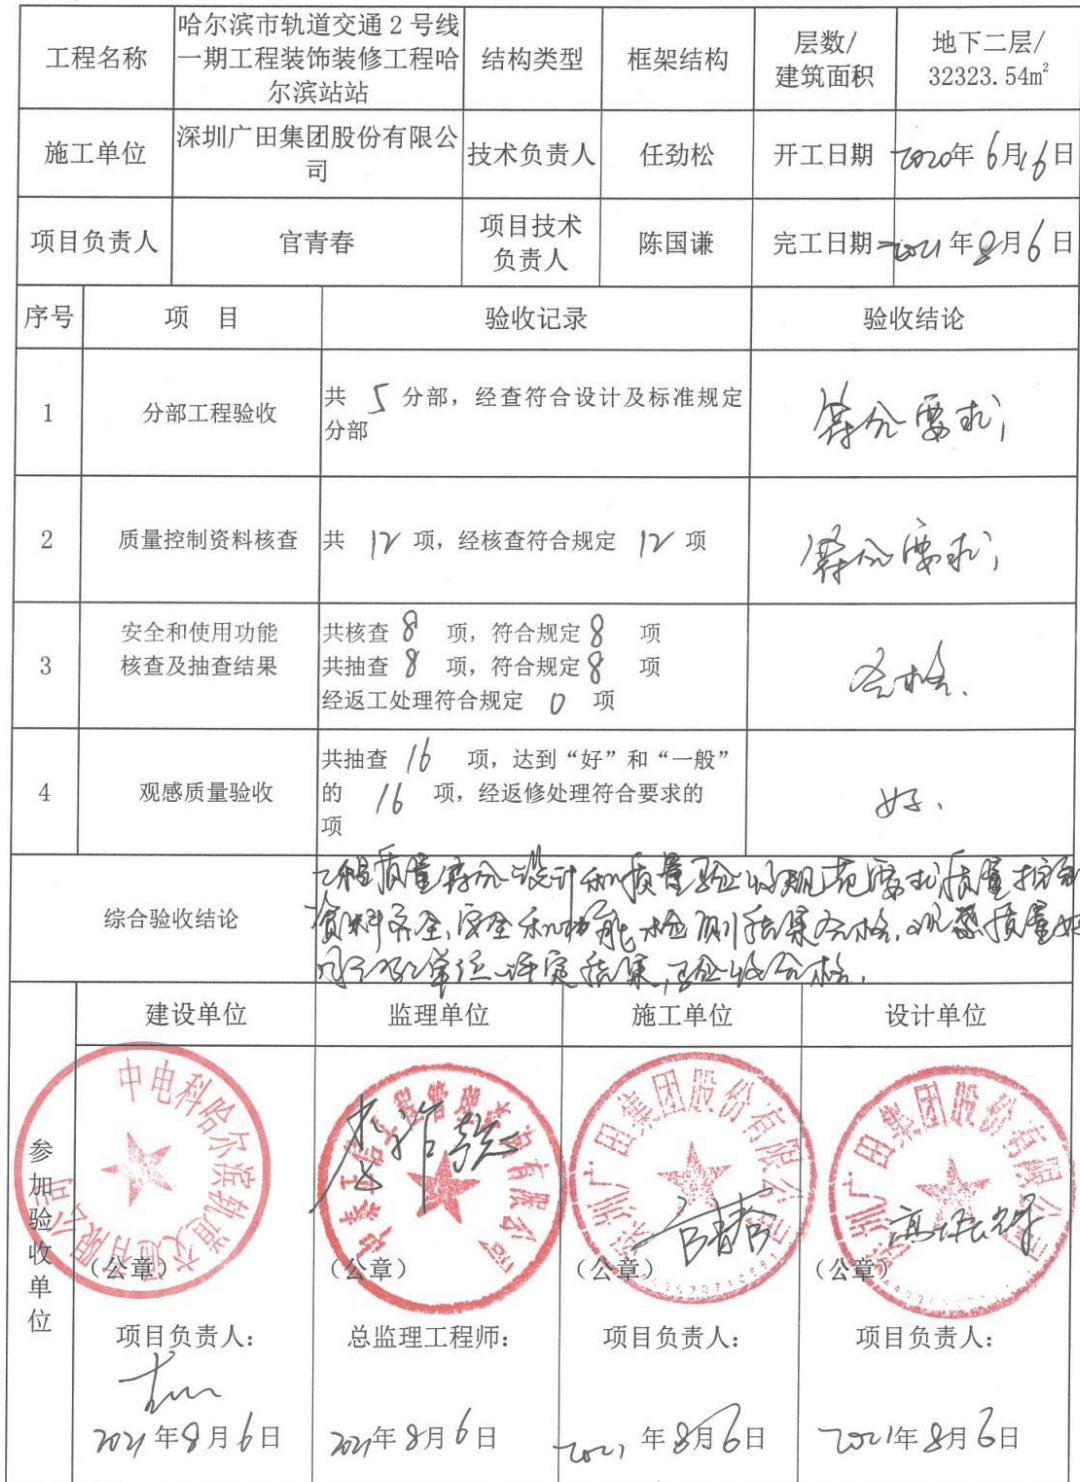 工程名称
哈尔滨市轨道交通 2 号线
一期工程装饰装修工程哈
尔滨站站
结构类型
框架结构
层数/
建筑面积
地下二层/
32323.54m²
施工单位
深圳广田集团股份有限公
司
技术负责人
任劲松
开工日期
2020年 6月16日
项目负责人
官青春
项目技术
负责人
陈国谦
完工日期
2021 年 8月 6 日
序号
项 目
验收记录
验收结论
1
分部工程验收
共 5 分部，经查符合设计及标准规定
分部
符合要求,
2
质量控制资料核查
共 12 项，经核查符合规定 12 项
符合要求,
3
安全和使用功能
核查及抽查结果
共核查 8 项，符合规定 8 项
共抽查 8 项，符合规定 8 项
经返工处理符合规定 0 项
合格.
4
观感质量验收
共抽查 16 项，达到“好”和“一般”
的 16 项，经返修处理符合要求的
项
好.
综合验收结论
工程质量符合设计和质量验收规范要求,质量控制
资料齐全,安全和功能检测结果合格,观感质量好
评定结果,验收合格.
参加验收单位
建设单位
监理单位
施工单位
设计单位
中电科哈尔滨轨道交通有限公司
有限公司
深圳广田集团股份有限公司
深圳广田集团股份有限公司
官青春
（公章）
（公章）
（公章）
（公章）
项目负责人：
总监理工程师：
项目负责人：
项目负责人：
2021 年 8 月 6 日
2021年 8月 6 日
2021 年 8月 6 日
2021年 8月 6 日